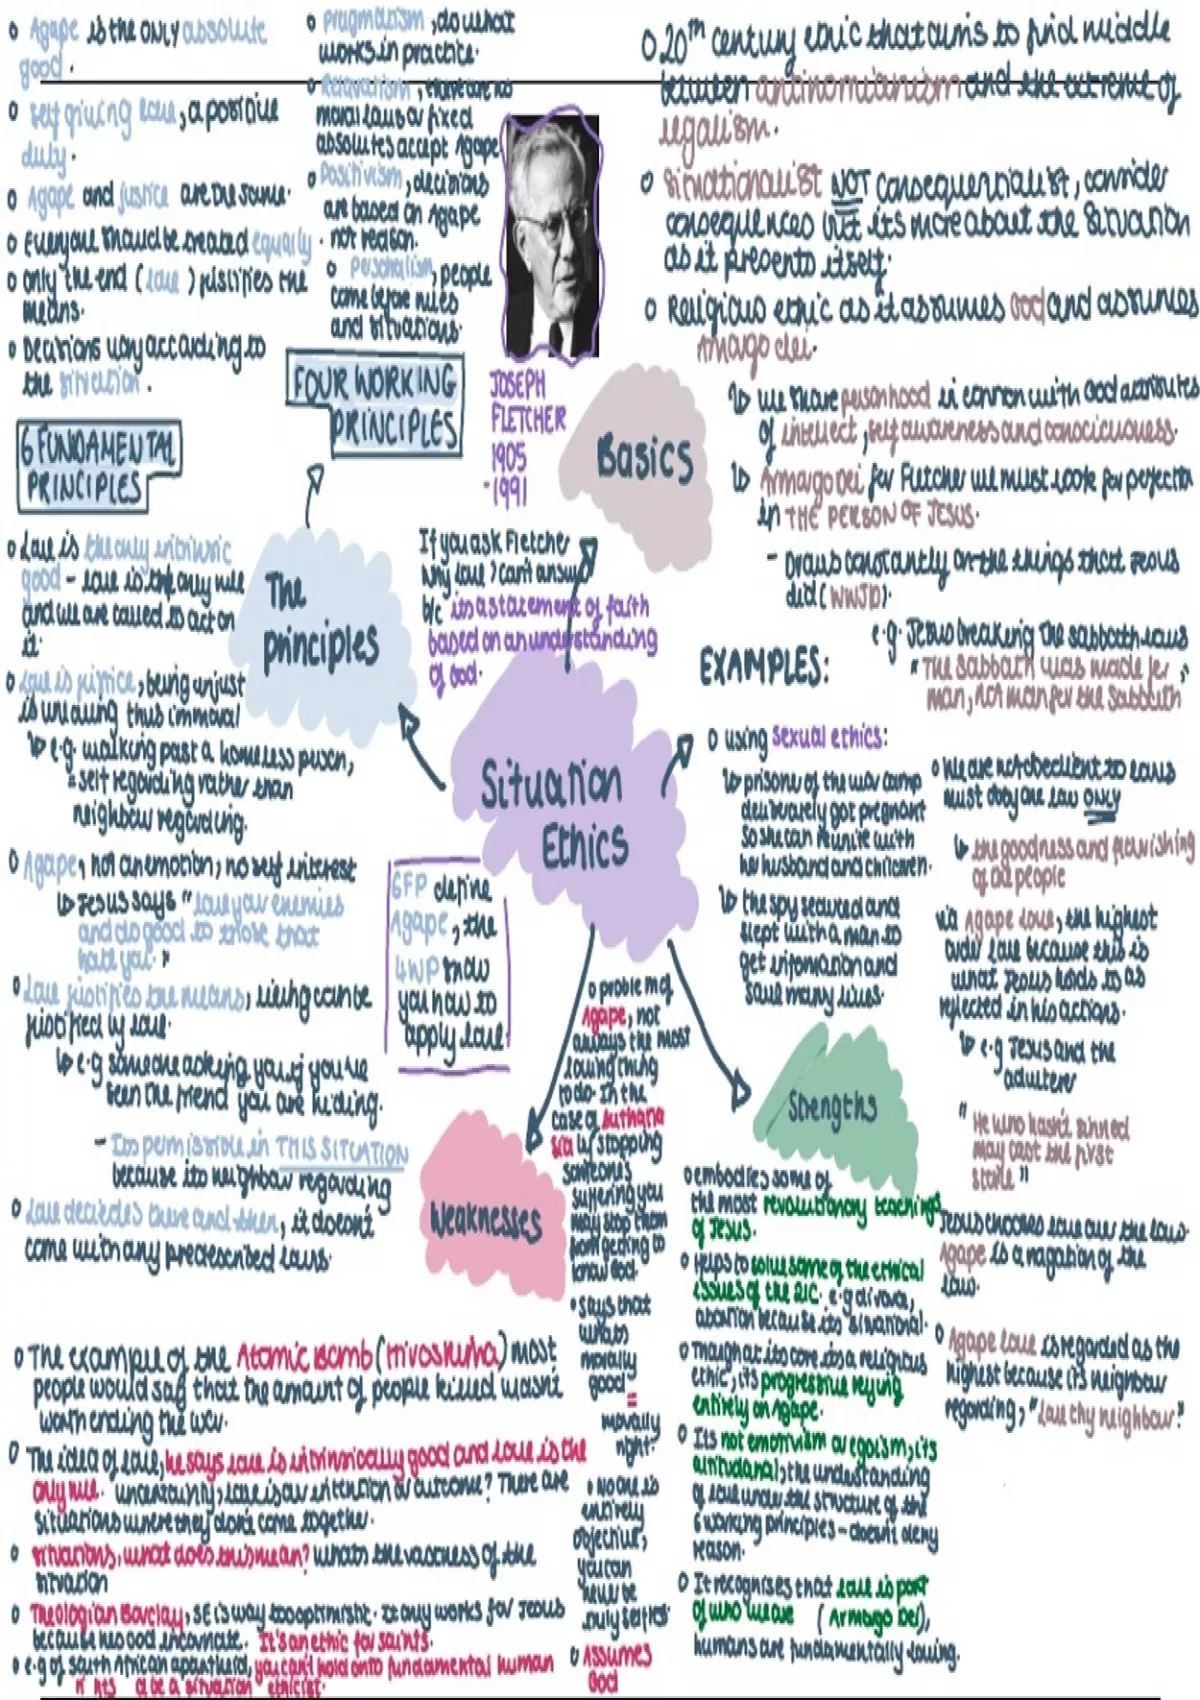 o Agape is the ONLY absolute
good.
o self giving love, a positive
duty.
o Agape and justice are the same.
o Everyone should be treated equally.
o only the end (love) justifies the
means.
o Decisions vary according to
the situation.
6 FUNDAMENTAL
PRINCIPLES
o pragmatism, do what
works in practice.
o Relativism, there are no
moral laws or fixed
absolutes accept Agape
o Positivism, decisions
are based on Agape
not reason.
o personalism, people
come before rules
and situations.
FOUR WORKING
PRINCIPLES
JOSEPH
FLETCHER
1905
-1991
Basics
o 20th century ethic that aims to find middle
between antinomianism and the extreme of
legalism.
o Situationalist NOT consequentialist, consider
consequences BUT its more about the situation
as it presents itself.
o Religious ethic as it assumes God and assumes
Imago dei.
↳ we share personhood in common with God attributes
of intellect, self awareness and consciousness.
↳ Armago Dei for Fletcher we must look for perfection
in THE PERSON OF JESUS.
- Draws constantly on the things that Jesus
did (WWJD).
e.g. Jesus breaking the sabbath laws
"The Sabbath was made for
man, not man for the Sabbath"
The
principles
If you ask Fletcher
why love? Can't answer
b/c its a statement of faith
based on an understanding
of God.
Situation
Ethics
o Love is the only intrinsic
good - love is the only rule
and we are called to act on
it.
o Love is justice, being unjust
is unloving thus immoral
↳ e.g. walking past a homeless person,
= self regarding rather than
neighbour regarding.
o Agape, not an emotion, no self interest
↳ Jesus says "love your enemies
and do good to those that
hate you."
o Love justifies the means, lying can be
justified by love.
↳ e.g someone asking you if you've
seen the friend you are hiding.
- Its permissible in THIS SITUATION
because its neighbour regarding
o Love decides there and then, it doesn't
come with any predecided laws.
6FP define
Agape, the
4WP show
you how to
apply love.
EXAMPLES:
o using sexual ethics:
↳ prisoner of the war camp
deliberately got pregnant
so she can reunite with
her husband and children.
↳ the spy seduced and
slept with a man to
get information and
save many lives.
o We are not obedient to laws
must obey one law ONLY
↳ the goodness and flourishing
of all people
via Agape love, the highest
order love because this is
what Jesus holds to as
reflected in his actions.
↳ e.g Jesus and the
adulterer
"He who hasn't sinned
may cast the first
stone"
Jesus chooses love over the laws.
Agape is a nagation of the
law.
o Agape love is regarded as the
highest because its neighbour
regarding, "love thy neighbour."
Strengths
o embodies some of
the most revolutionary teachings
of Jesus.
o Helps to solve some of the ethical
issues of the 21C. e.g divorce,
abortion because its situational.
o Though at its core its a religious
ethic, its progressive relying
entirely on Agape.
o Its not emotivism or egoism, its
attitudanal, the understanding
of love under the structure of the
6 working principles - doesn't deny
reason.
o It recognises that love is part
of who we are (Armago Dei),
humans are fundamentally loving.
Weaknesses
o problem of
Agape, not
always the most
loving thing
to do. In the
case of euthana
sia by stopping
someone's
suffering you
may stop them
from getting to
know God.
• says that
whats
morally
good =
morally
right.
• No one is
entirely
objective,
you can
never be
truly selfless.
o Assumes
God
o The example of the Atomic Bomb (Hiroshima) most
people would say that the amount of people killed wasn't
worth ending the war.
o The idea of love, he says love is intrinsically good and love is the
only rule. uncertainty, love is our intention or outcome? There are
situations where they don't come together.
o situations, what does this mean? whats the vastness of the
situation
o Theologian Barclay, SE is way too optimistic. It only works for Jesus
because hes God incarnate. It's an ethic for saints.
• e.g of South African apartheid, you can't hold onto fundamental human
be a situation ethicist.